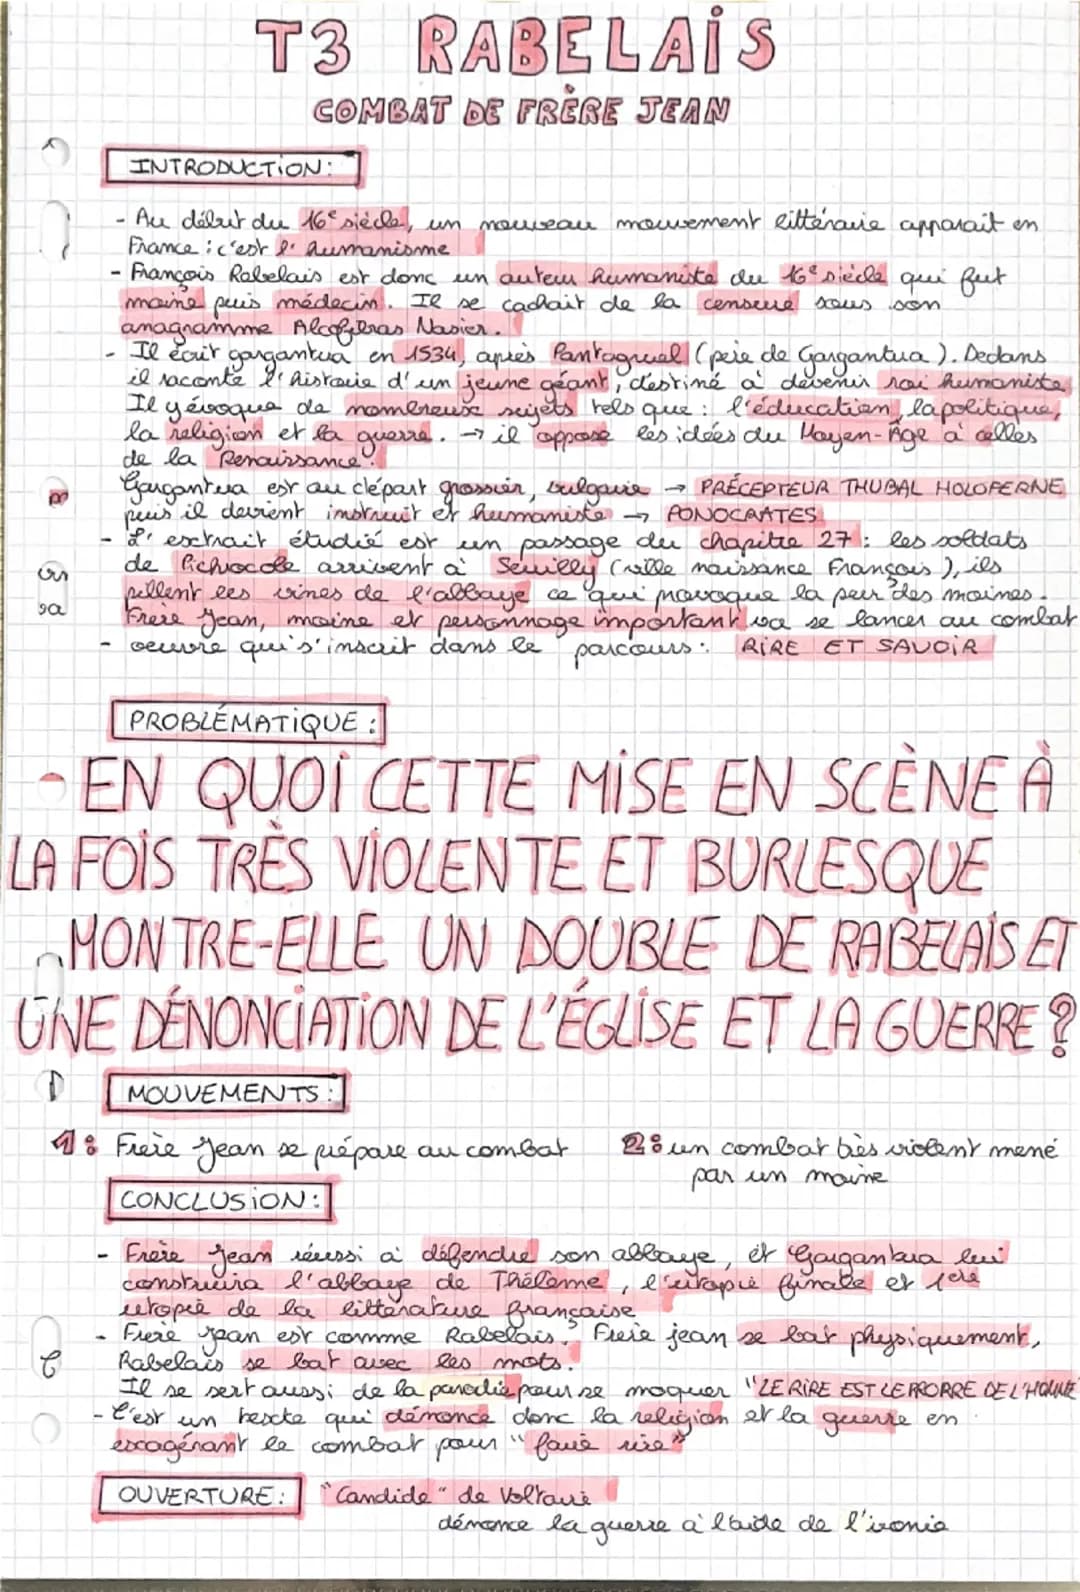 T3 RABELAIS
COMBAT DE FRÈRE JEAN
INTRODUCTION:
- Au début du 16e siècle, un nouveau mouvement littéraire apparait en
France : c'est l'humanisme
- François Rabelais est donc un auteur humaniste du 16e siècle qui fut
moine puis médecin. Il se cachait de la censure sous son
anagramme Alcofibras Nasier.
- Il écrit gargantua en 1534, après Pantagruel (père de Gargantua). Dedans
il raconte l'histoire d'un jeune géant, destiné à devenir roi humaniste
Il y évoque de nombreux sujets tels que : l'éducation, la politique,
la religion et la guerre. → il oppose les idées du Moyen-Âge à celles
de la Renaissance.
Gargantua est au départ grossier, vulgaire → PRÉCEPTEUR THUBAL HOLOFERNE
puis il devient instruit et humaniste → PONOCRATES
- L'extrait étudié est un passage du chapitre 27 : les soldats
de Pichrocole arrivent à Seuilly (ville naissance François), ils
pillent les vines de l'abbaye ce qui provoque la peur des moines.
Frère Jean, moine et personnage important va se lancer au combat
- oeuvre qui s'inscrit dans le parcours : RIRE ET SAVOIR
PROBLÉMATIQUE :
- EN QUOI CETTE MISE EN SCÈNE À
LA FOIS TRÈS VIOLENTE ET BURLESQUE
MONTRE-ELLE UN DOUBLE DE RABELAIS ET
UNE DÉNONCIATION DE L'ÉGLISE ET LA GUERRE ?
MOUVEMENTS :
1 : Frère Jean se prépare au combat
2 : un combat très violent mené
par un moine
CONCLUSION :
- Frère Jean réussi à défendre son abbaye, et Gargantua lui
construira l'abbaye de Thélème, l'utopie finale et 1ère
utopie de la littérature française
- Frère Jean est comme Rabelais. Frère jean se bat physiquement,
Rabelais se bat avec les mots.
Il se sert aussi de la parodie pour se moquer "LE RIRE EST LE PROPRE DE L'HOMME"
- C'est un texte qui dénonce donc la religion et la guerre en
exagérant le combat pour "faire rire"
OUVERTURE : "Candide" de Voltaire
dénonce la guerre à l'aide de l'ironie